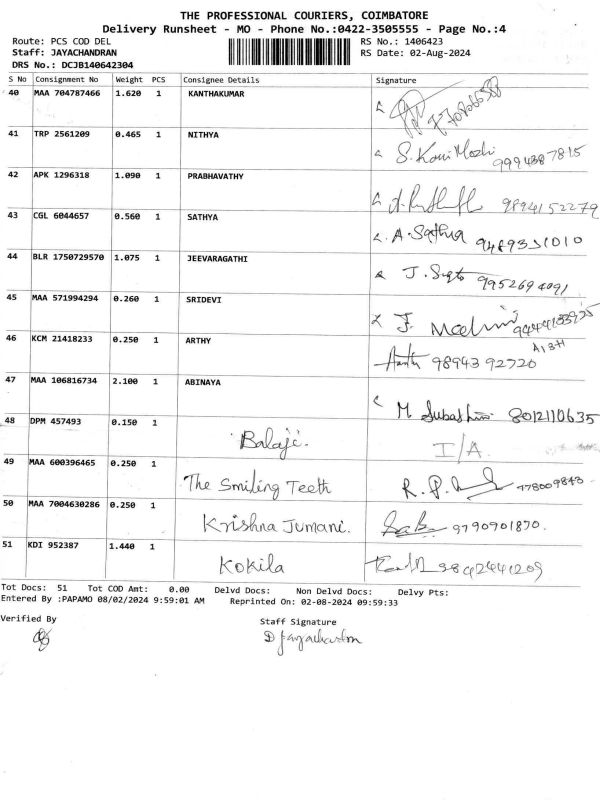 THE PROFESSIONAL COURIERS, COIMBATORE
Delivery Runsheet - MO - Phone No.:0422-3505555 - Page No.:4
Route: PCS COD DEL RS No.: 1406423
Staff: JAYACHANDRAN RS Date: 02-Aug-2024
DRS No.: DCJB140642304
S No Consignment No Weight PCS Consignee Details Signature
40 MAA 704787466 1.620 1 KANTHAKUMAR
41 TRP 2561209 0.465 1 NITHYA
S. Kani Mozhi 9994387815
42 APK 1296318 1.090 1 PRABHAVATHY
9894152279
43 CGL 6044657 0.560 1 SATHYA
A. Sathya 9489331010
44 BLR 1750729570 1.075 1 JEEVARAGATHI
J. 9952694091
45 MAA 571994294 0.260 1 SRIDEVI
J.
46 KCM 21418233 0.250 1 ARTHY
98943 92720
47 MAA 106816734 2.100 1 ABINAYA
M. 8012110635
48 DPM 457493 0.150 1 Balaji. I/A.
49 MAA 600396465 0.250 1 The Smiling Teeth R. P.
50 MAA 7004630286 0.250 1 Krishna Jumani. 9790901870.
51 KDI 952387 1.440 1 Kokila 9842441209
Tot Docs: 51 Tot COD Amt: 0.00 Delvd Docs: Non Delvd Docs: Delvy Pts:
Entered By :PAPAMO 08/02/2024 9:59:01 AM Reprinted On: 02-08-2024 09:59:33
Verified By Staff Signature
D Jayachandran